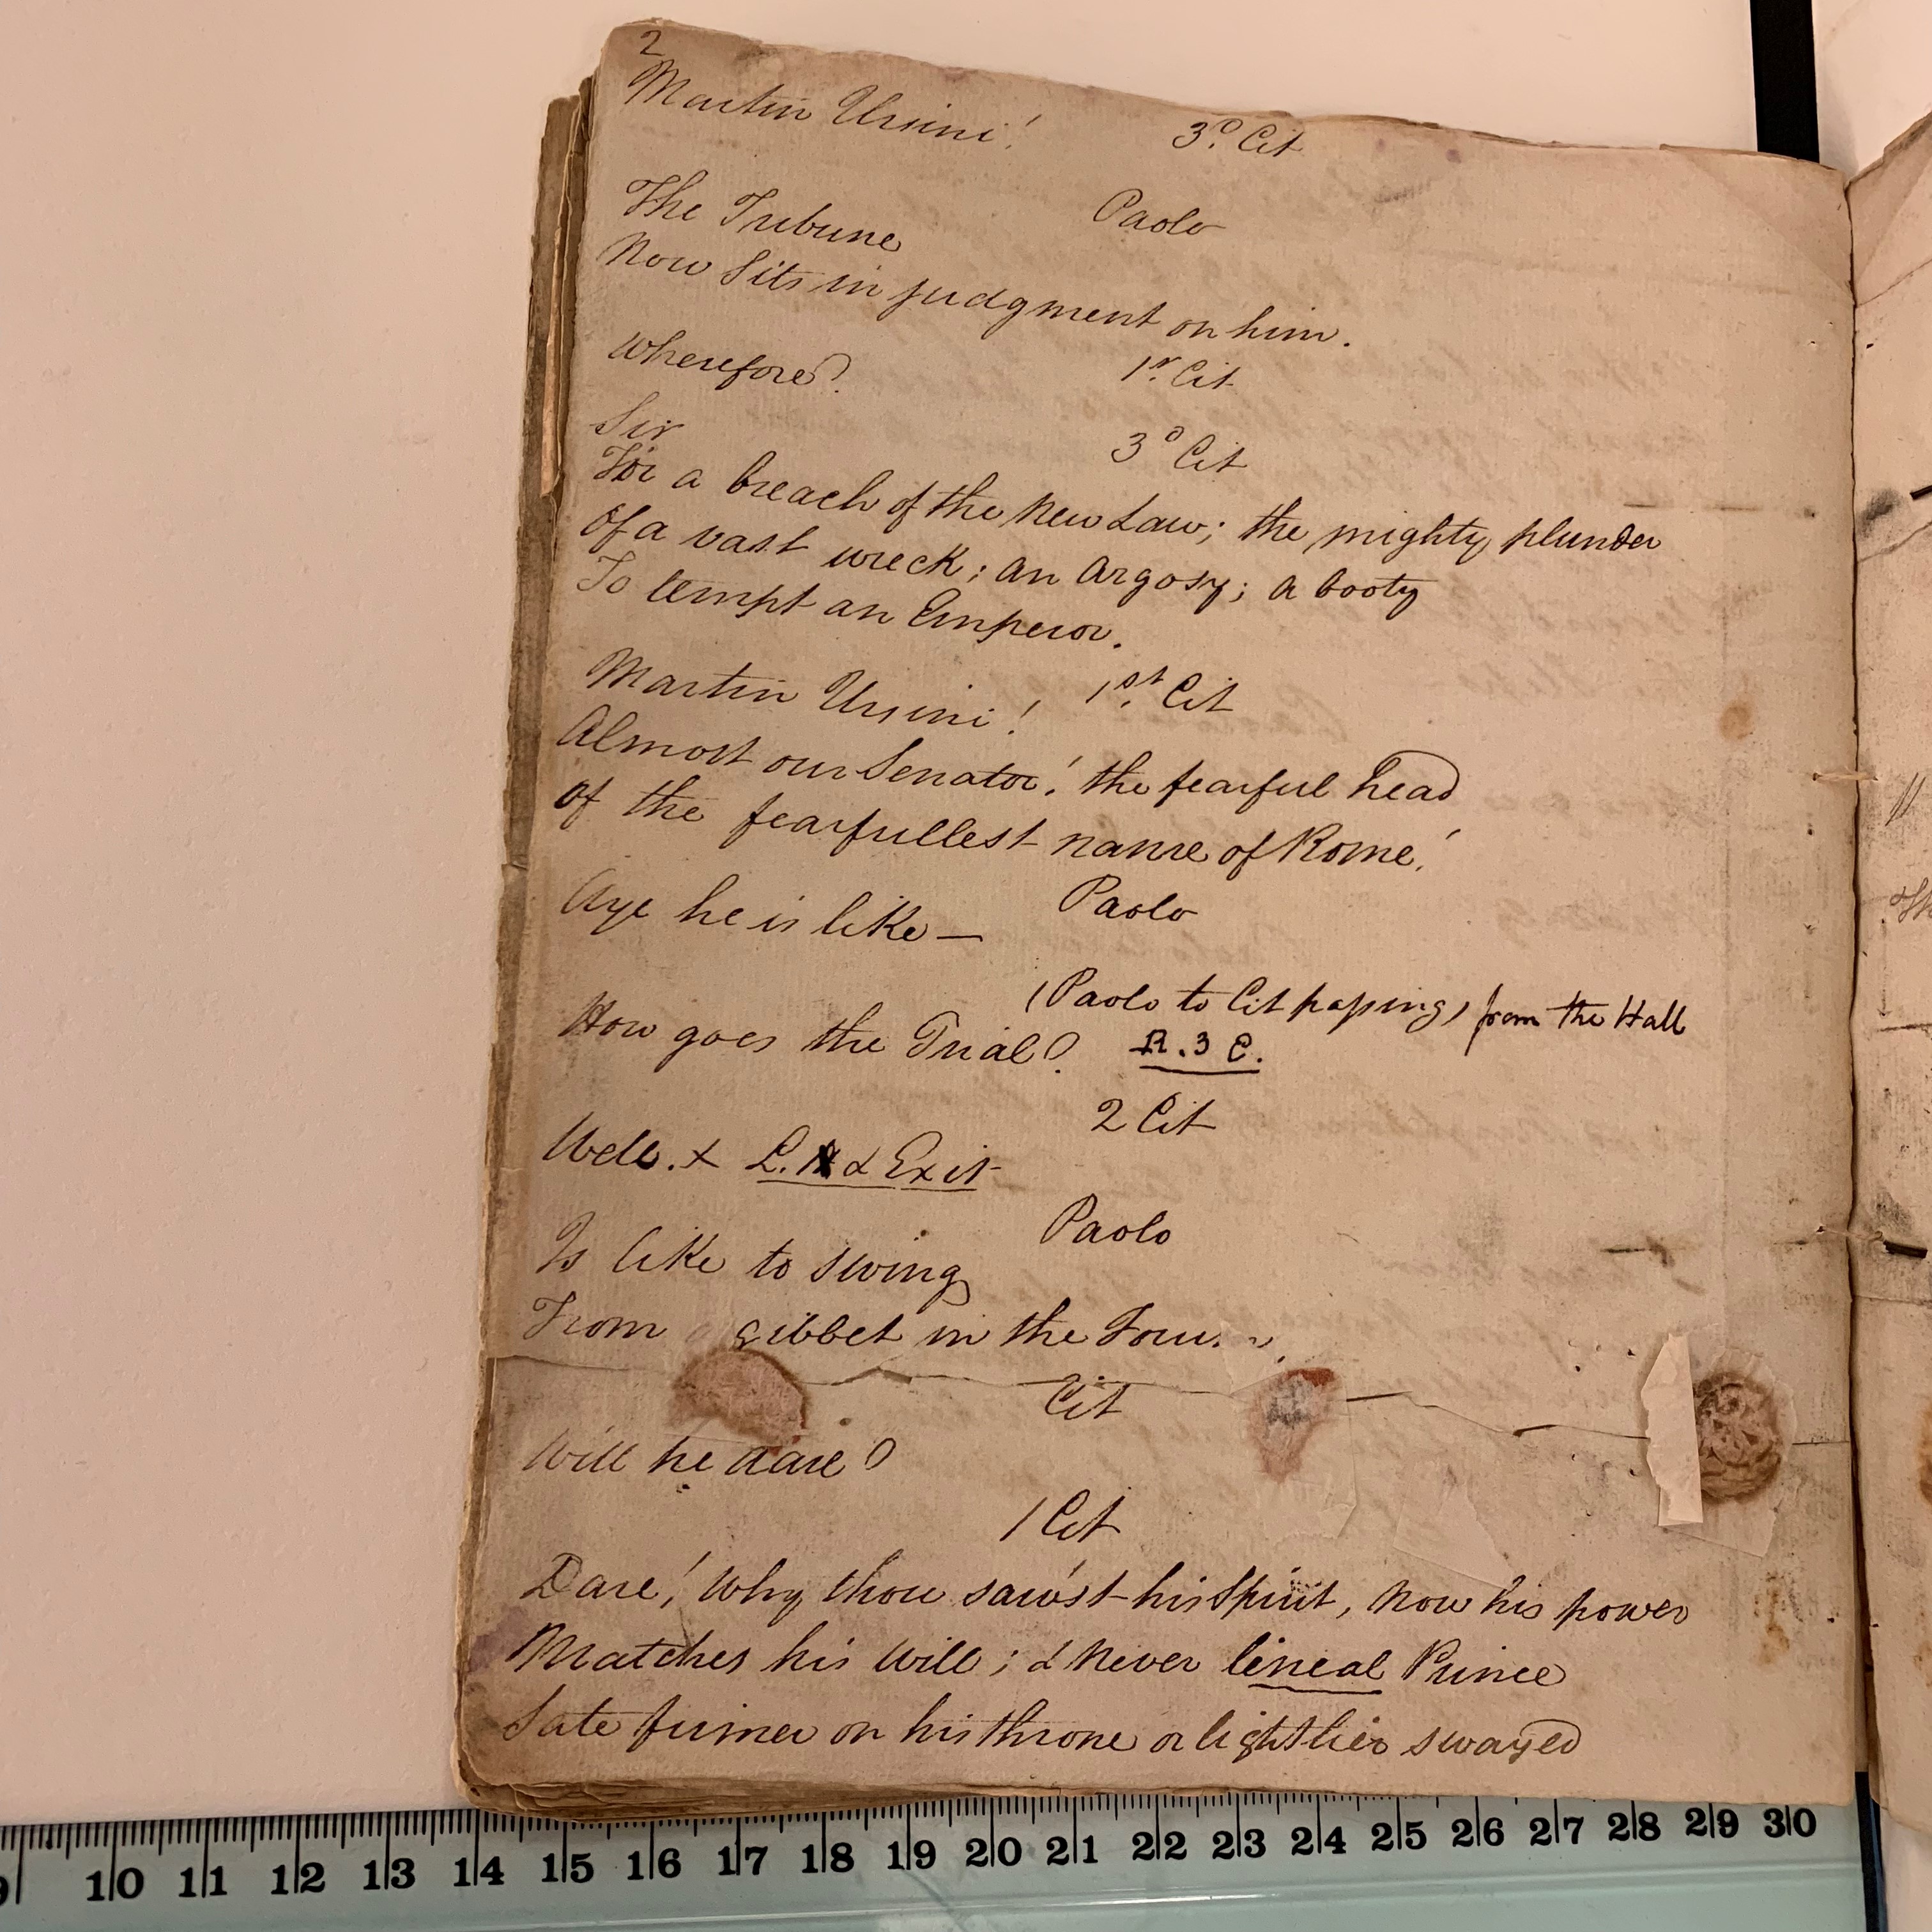 2
3d. Cit
Martin Ursini!
Paolo
The Tribune
Now Sits in judgment on him.
1st. Cit
Wherefore?
3d Cit
Sir
For a breach of the New Law; the mighty plunder
Of a vast wreck; an Argosy; a booty
To tempt an Emperor.
1st. Cit
Martin Ursini!
Almost our Senator! the fearful head
Of the fearfullest name of Rome!
Paolo
Aye he is like —
(Paolo to Cit passing) from the Hall
How goes the Trial? R. 3 E.
2 Cit
Well. x L. & Exit
Paolo
Is like to swing
From gibbet in the
Cit
Will he dare?
1 Cit
Dare! Why thou saw'st his Spirit, Now his power
Matches his Will; & Never lineal Prince
Sate firmer on his throne or lightlier swayed
9 10 11 12 13 14 15 16 17 18 19 20 21 22 23 24 25 26 27 28 29 30